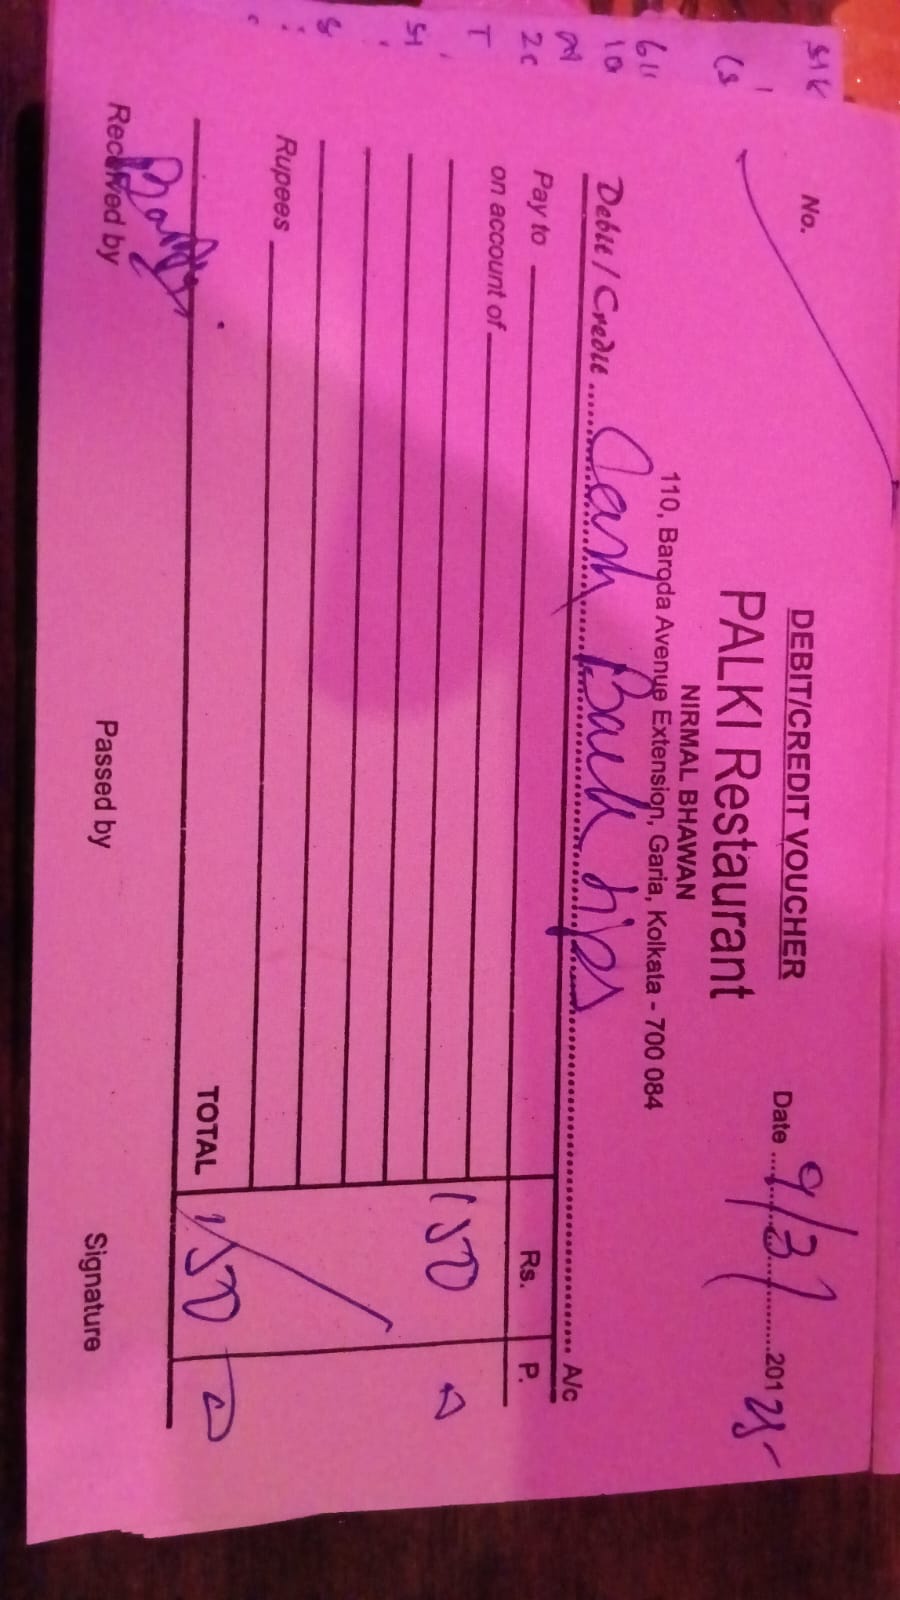 DEBIT/CREDIT VOUCHER
No.
Date 9/3/ 201 25
PALKI Restaurant
NIRMAL BHAWAN
110, Baroda Avenue Extension, Garia, Kolkata - 700 084
Debit / Credit Cash Back tips A/c
Pay to Rs. P.
on account of
150 0
Rupees
TOTAL 150 0
Received by Passed by Signature